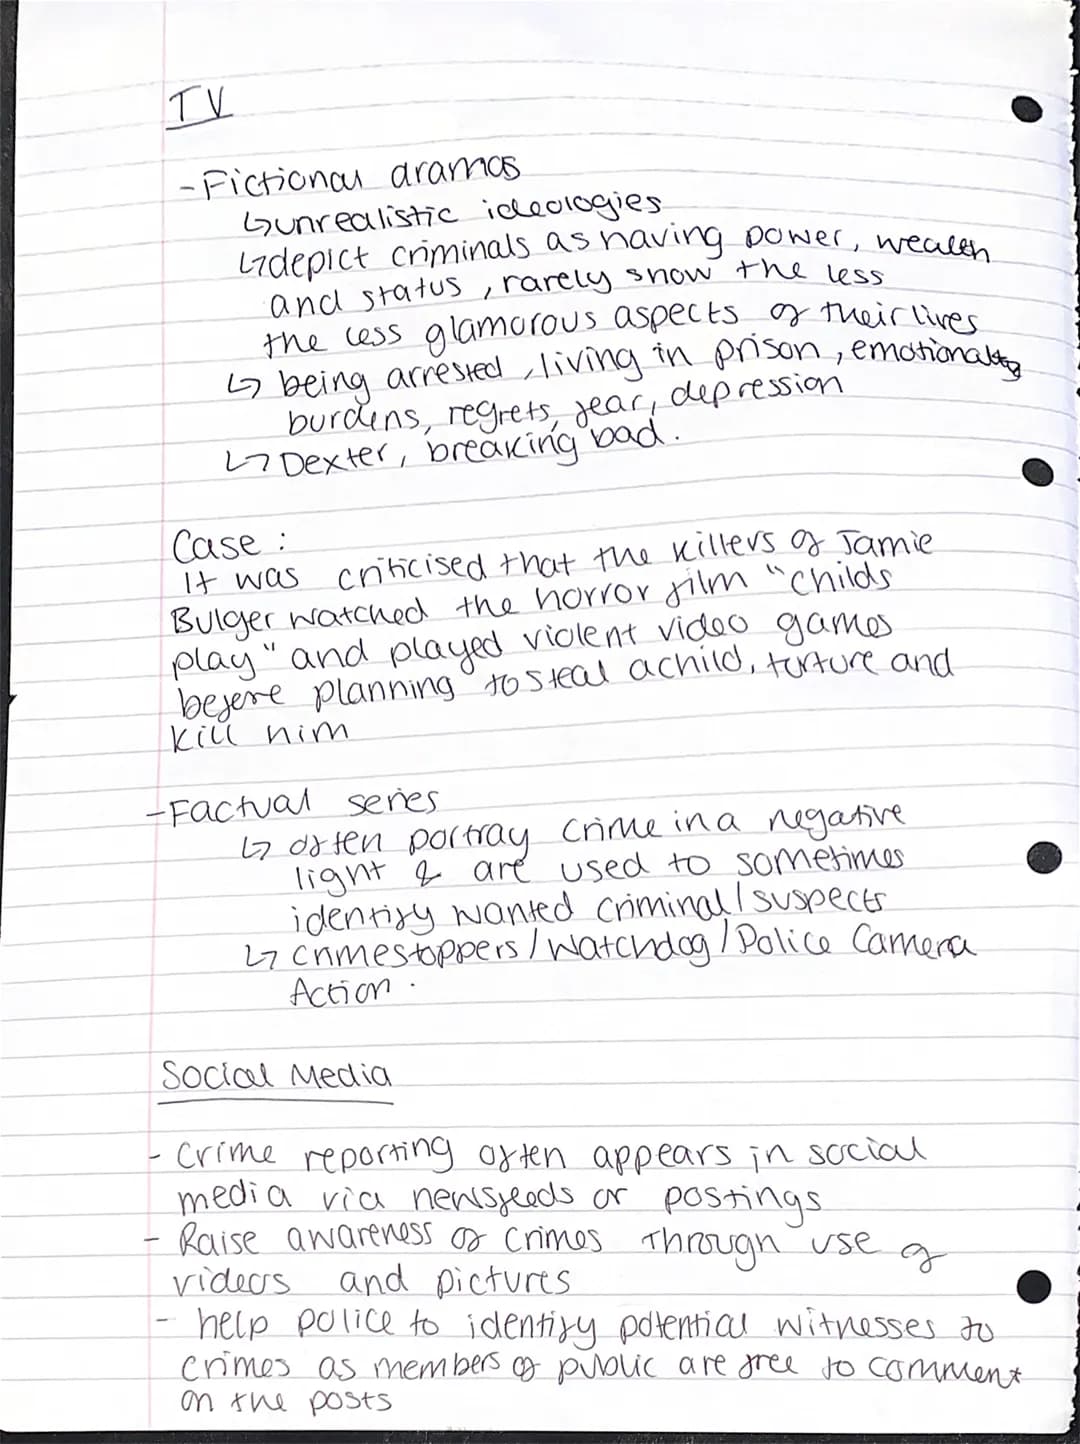 TV
- Fictional dramas
↳ unrealistic ideologies
↳ depict criminals as having power, wealth
and status, rarely show the less
the less glamorous aspects of their lives
↳ being arrested, living in prison, emotional
burdens, regrets, fear, depression
↳ Dexter, breaking bad.
Case :
It was criticised that the killers of Jamie
Bulger watched the horror film "childs
play" and played violent video games
before planning to steal a child, torture and
kill him
- Factual series
↳ often portray crime in a negative
light & are used to sometimes
identify wanted criminal/suspects
↳ crimestoppers/Watchdog/Police Camera
Action.
Social Media
- Crime reporting often appears in social
media via newsfeeds or postings
- Raise awareness of crimes through use of
videos and pictures
- help police to identify potential witnesses to
crimes as members of public are free to comment
on the posts